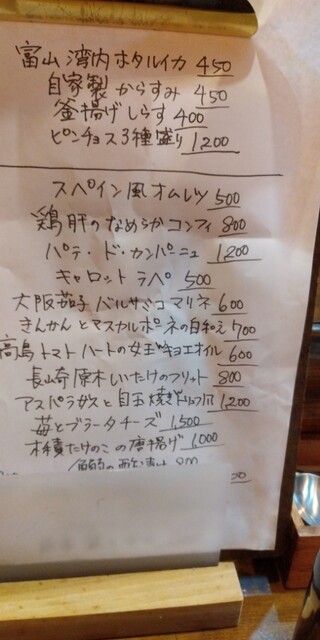 富山湾内ホタルイカ 450
自家製からすみ 450
釜揚げしらす 400
ピンチョス3種盛り 1,200
スペイン風オムレツ 500
鶏肝のなめらかコンフィ 800
パテ・ド・カンパーニュ 1,200
キャロットラペ 500
大阪茄子バルサミコマリネ 600
きんかんとマスカルポーネの白和え 700
高島トマトハートの女王 キヨエオイル 600
長崎原木しいたけのフリット 800
アスパラガスと目玉焼き トリュフ 1,200
苺とブラータチーズ 1,500
木積たけのこの唐揚げ 1,000